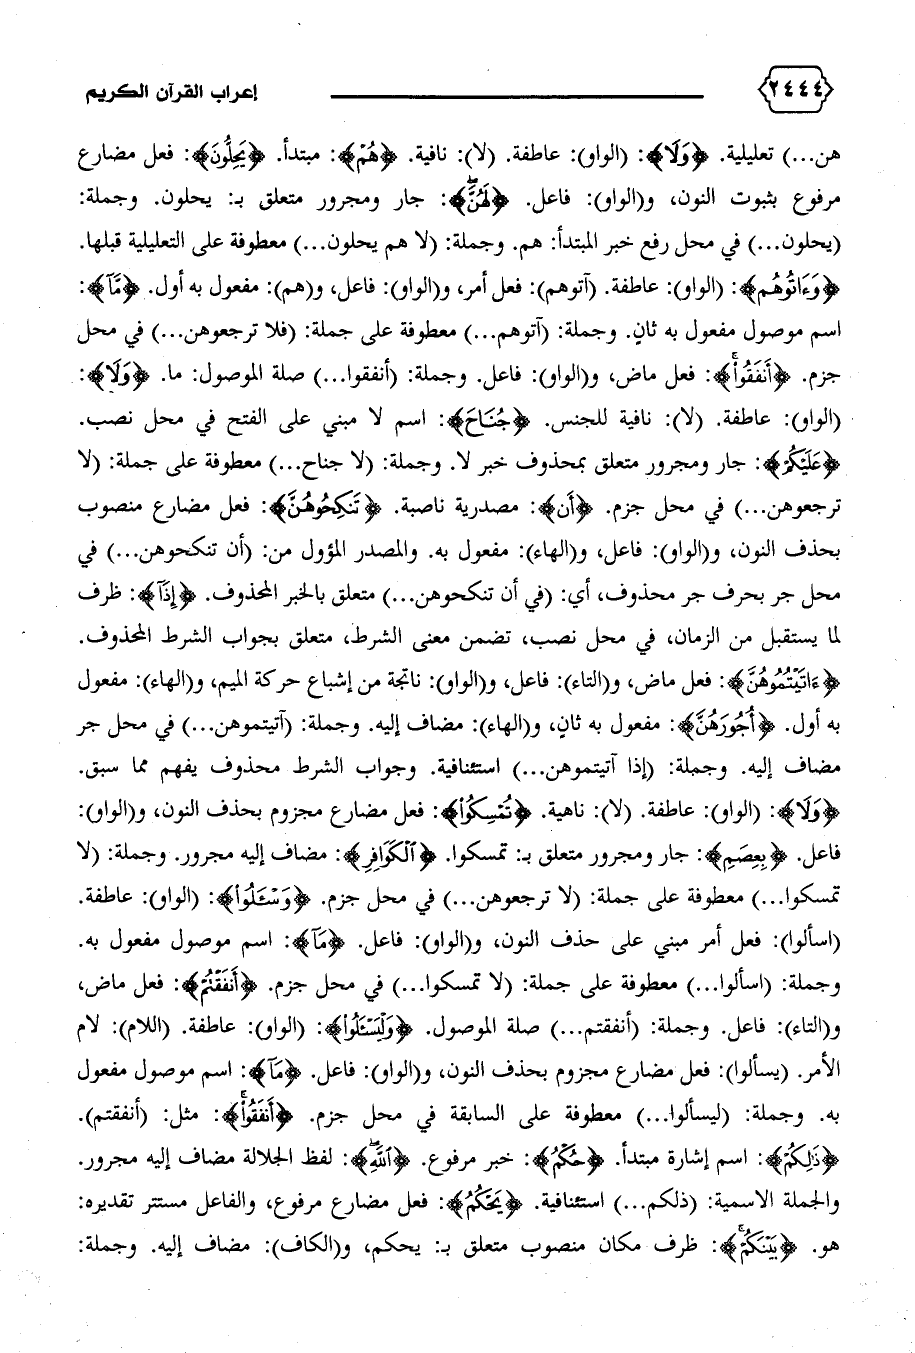 ٢٤٤٤ إعراب القرآن الكريم
هن...) تعليلية. ﴿وَلَا﴾: (الواو): عاطفة. (لا): نافية. ﴿هُمْ﴾: مبتدأ. ﴿يَحِلُّونَ﴾: فعل مضارع
مرفوع بثبوت النون، و(الواو): فاعل. ﴿لَهُنَّۖ﴾: جار ومجرور متعلق بـ: يحلون. وجملة:
(يحلون...) في محل رفع خبر المبتدأ: هم. وجملة: (لا هم يحلون...) معطوفة على التعليلية قبلها.
﴿وَءَاتُوهُم﴾: (الواو): عاطفة. (آتوهم): فعل أمر، و(الواو): فاعل، و(هم): مفعول به أول. ﴿مَّآ﴾:
اسم موصول مفعول به ثانٍ. وجملة: (آتوهم...) معطوفة على جملة: (فلا ترجعوهن...) في محل
جزم. ﴿أَنفَقُواْۚ﴾: فعل ماض، و(الواو): فاعل. وجملة: (أنفقوا...) صلة الموصول: ما. ﴿وَلَا﴾:
(الواو): عاطفة. (لا): نافية للجنس. ﴿جُنَاحَ﴾: اسم لا مبني على الفتح في محل نصب.
﴿عَلَيْكُمْ﴾: جار ومجرور متعلق بمحذوف خبر لا. وجملة: (لا جناح...) معطوفة على جملة: (لا
ترجعوهن...) في محل جزم. ﴿أَن﴾: مصدرية ناصبة. ﴿تَنكِحُوهُنَّ﴾: فعل مضارع منصوب
بحذف النون، و(الواو): فاعل، و(الهاء): مفعول به. والمصدر المؤول من: (أن تنكحوهن...) في
محل جر بحرف جر محذوف، أي: (في أن تنكحوهن...) متعلق بالخبر المحذوف. ﴿إِذَآ﴾: ظرف
لما يستقبل من الزمان، في محل نصب، تضمن معنى الشرط، متعلق بجواب الشرط المحذوف.
﴿ءَاتَيْتُمُوهُنَّ﴾: فعل ماض، و(التاء): فاعل، و(الواو): ناتجة من إشباع حركة الميم، و(الهاء): مفعول
به أول. ﴿أُجُورَهُنَّ﴾: مفعول به ثانٍ، و(الهاء): مضاف إليه. وجملة: (آتيتموهن...) في محل جر
مضاف إليه. وجملة: (إذا آتيتموهن...) استئنافية. وجواب الشرط محذوف يفهم مما سبق.
﴿وَلَا﴾: (الواو): عاطفة. (لا): ناهية. ﴿تُمْسِكُواْ﴾: فعل مضارع مجزوم بحذف النون، و(الواو):
فاعل. ﴿بِعِصَمِ﴾: جار ومجرور متعلق بـ: تمسكوا. ﴿ٱلْكَوَافِرِ﴾: مضاف إليه مجرور. وجملة: (لا
تمسكوا...) معطوفة على جملة: (لا ترجعوهن...) في محل جزم. ﴿وَسْـَٔلُواْ﴾: (الواو): عاطفة.
(اسألوا): فعل أمر مبني على حذف النون، و(الواو): فاعل. ﴿مَآ﴾: اسم موصول مفعول به.
وجملة: (اسألوا...) معطوفة على جملة: (لا تمسكوا...) في محل جزم. ﴿أَنفَقْتُمْ﴾: فعل ماض،
و(التاء): فاعل. وجملة: (أنفقتم...) صلة الموصول. ﴿وَلْيَسْـَٔلُواْ﴾: (الواو): عاطفة. (اللام): لام
الأمر. (يسألوا): فعل مضارع مجزوم بحذف النون، و(الواو): فاعل. ﴿مَآ﴾: اسم موصول مفعول
به. وجملة: (ليسألوا...) معطوفة على السابقة في محل جزم. ﴿أَنفَقُواْۚ﴾: مثل: (أنفقتم).
﴿ذَٰلِكُمْ﴾: اسم إشارة مبتدأ. ﴿حُكْمُ﴾: خبر مرفوع. ﴿ٱللَّهِۖ﴾: لفظ الجلالة مضاف إليه مجرور.
والجملة الاسمية: (ذلكم...) استئنافية. ﴿يَحْكُمُ﴾: فعل مضارع مرفوع، والفاعل مستتر تقديره:
هو. ﴿بَيْنَكُمْۚ﴾: ظرف مكان منصوب متعلق بـ: يحكم، و(الكاف): مضاف إليه. وجملة: